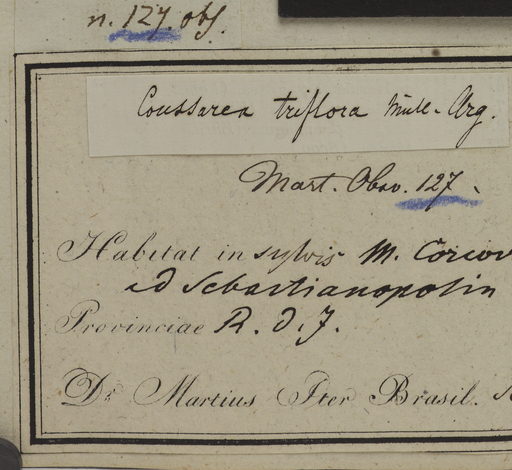 n. 127. obs.
Coussarea triflora Müll-Arg.
Mart. Obsv. 127.
Habitat in sylvis M. Corcov
ad Sebastianopolin
Provinciae R. d. J.
Dr. Martius Iter Brasil.